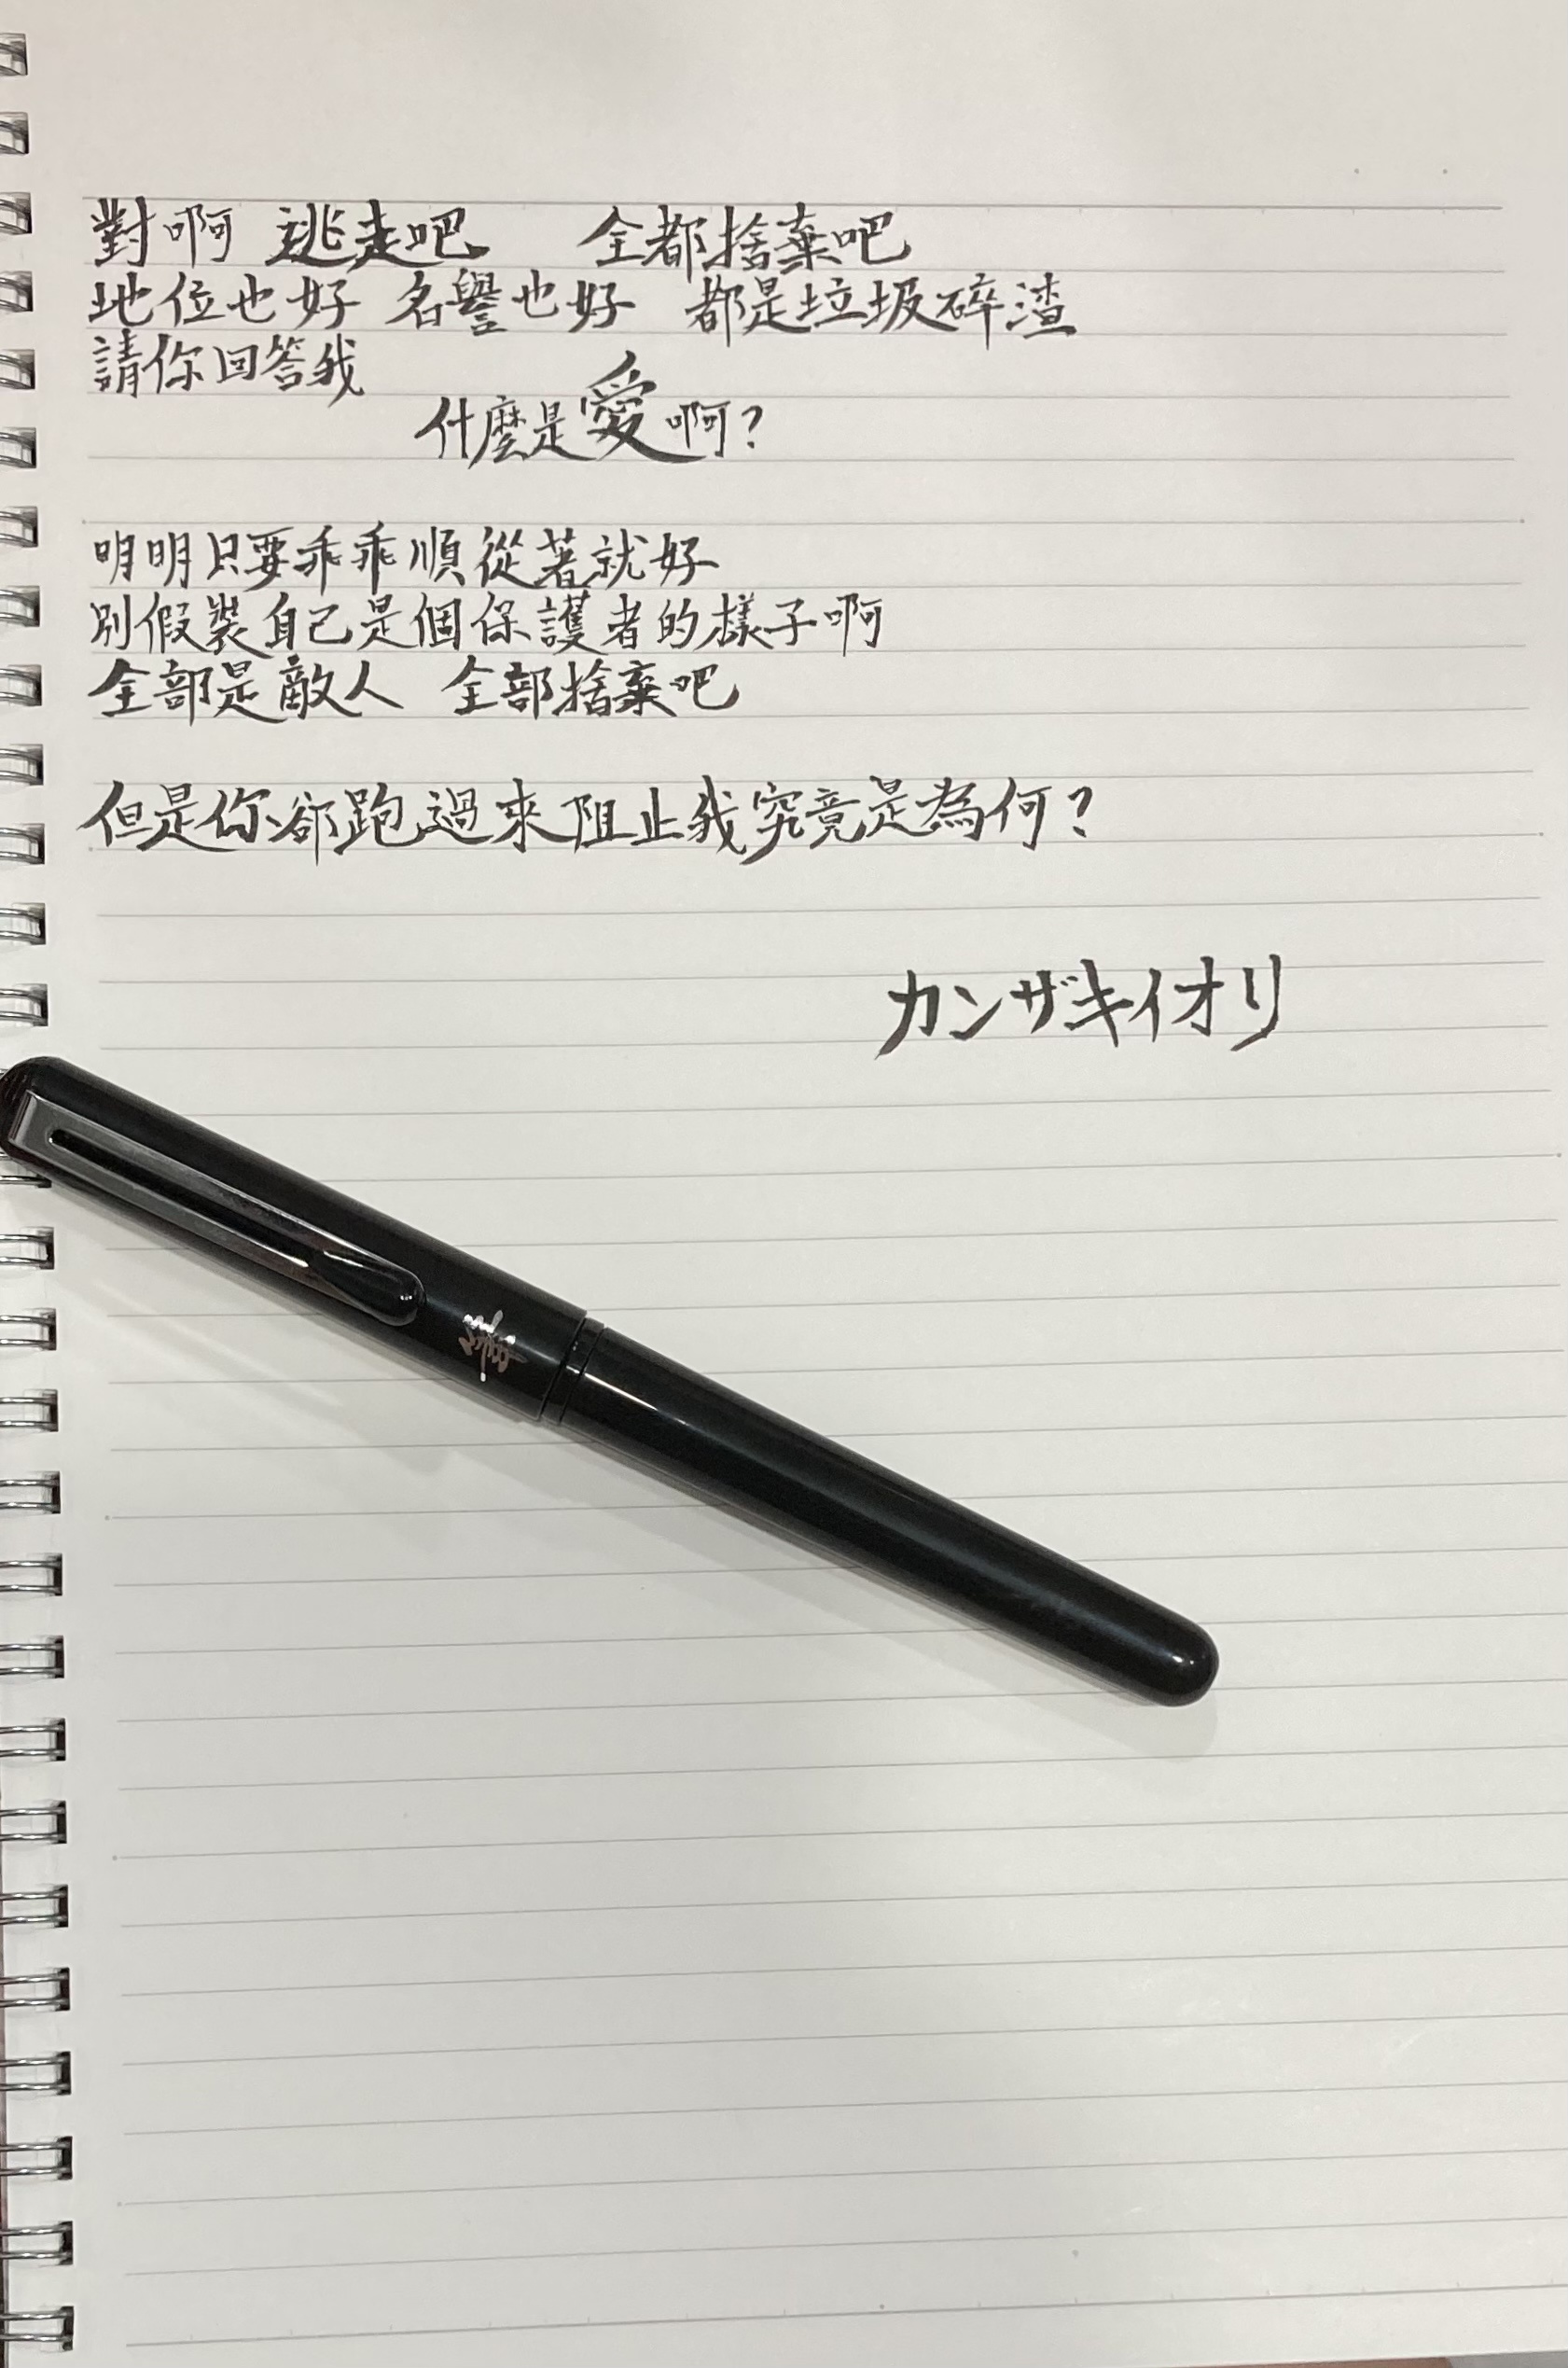 對啊 逃走吧 全都捨棄吧
地位也好 名譽也好 都是垃圾碎渣
請你回答我
什麼是愛啊?
明明只要乖乖順從著就好
別假裝自己是個保護者的樣子啊
全部是敵人 全部捨棄吧
但是你卻跑過來阻止我究竟是為何?
カンザキイオリ
筆